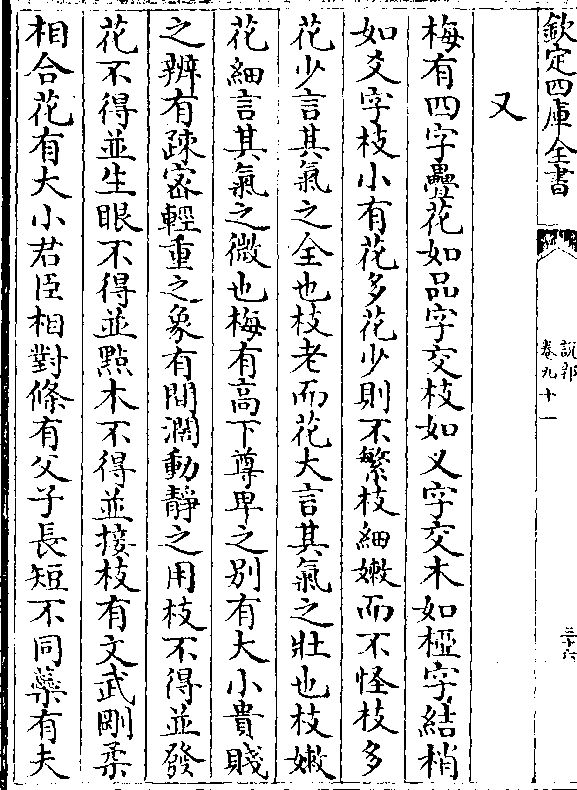 欽定四庫全書
説郛
卷九十一
三十六
又
梅有四字疊花如品字交枝如乂字交木如椏字結梢
如爻字枝小有花多花少則不繁枝細嫩而不怪枝多
花少言其氣之全也枝老而花大言其氣之壯也枝嫩
花細言其氣之微也梅有高下尊卑之别有大小貴賤
之辨有疎宻輕重之象有間濶動靜之用枝不得並發
花不得並生眼不得並點木不得並接枝有文武剛柔
相合花有大小君臣相對條有父子長短不同蘂有夫